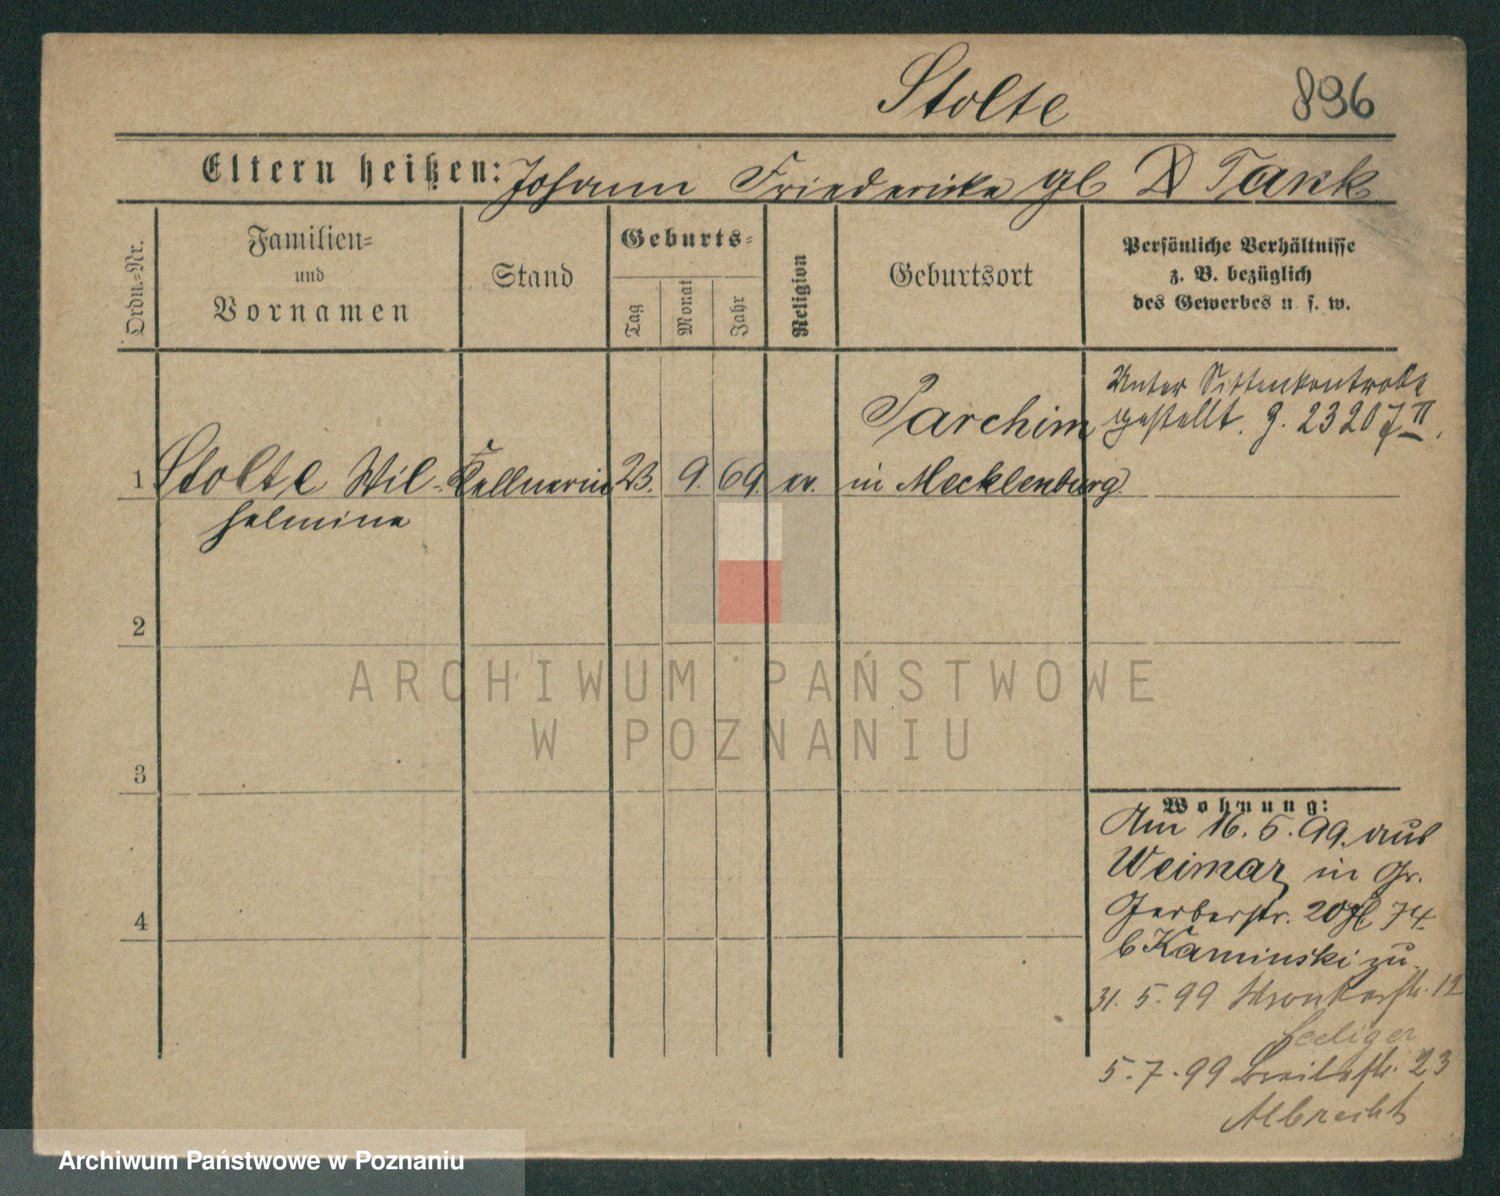 Stolte 896
Eltern heißen: Johann Friederike gb Tank
Ordn.-Nr.
Familien-
und
Vornamen
Stand
Geburts-
Tag
Monat
Jahr
Religion
Geburtsort
Persönliche Verhältnisse
z. B. bezüglich
des Gewerbes u. s. w.
Unter Sittenkontrolle
gestellt. J. 2320
1 Stolte Wil- Kellnerin 23. 9. 69. ev. Parchim
in Mecklenburg
helmine
2
3
4
ARCHIWUM PAŃSTWOWE
W POZNANIU
Wohnung:
Am 16. 5. 99. aus
Weimar in Gr.
Gerberstr. 20 74
b Kaminski zu
31. 5. 99 Wronkerstr. 12
Seeliger
5. 7. 99 Breitestr. 23
Albrecht
Archiwum Państwowe w Poznaniu